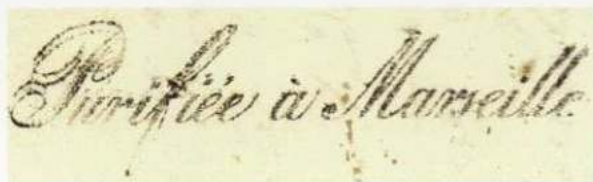 Purifiée à Marseille